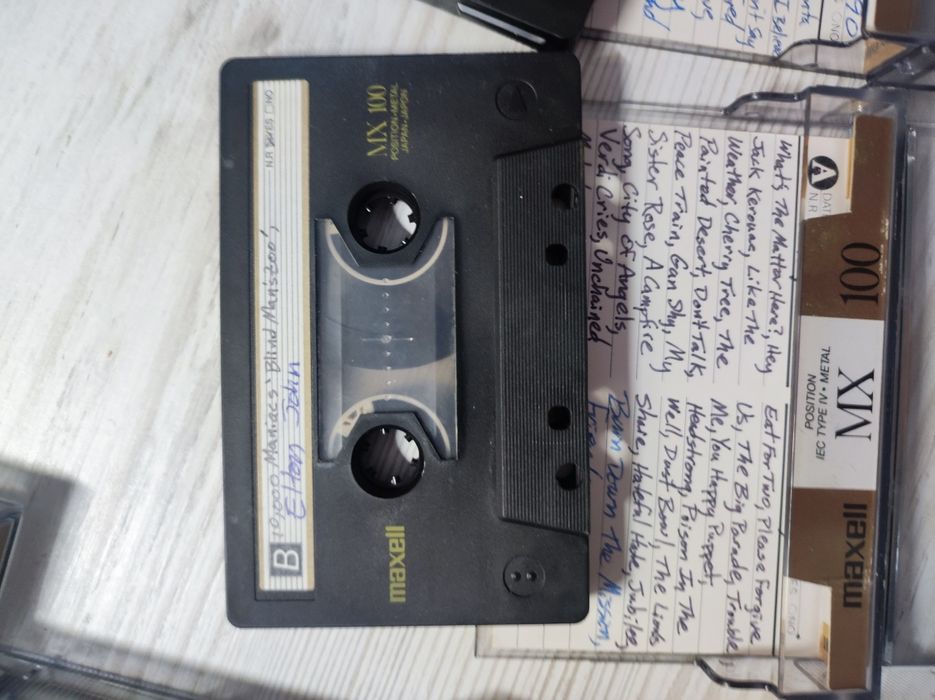 B
10,000 Maniacs' 'Blind Man's Zoo',
Elton John
N.R. □YES □NO
MX 100
POSITION•METAL
JAPAN•JAPON
maxell
What's The Matter Here?, Hey
Jack Kerouac, Like The
Weather, Cherry Tree, The
Painted Desert, Don't Talk,
Peace Train, Gun Shy, My
Sister Rose, A Campfire
Song, City of Angels,
Verdi Cries, Unchained
Eat For Two, Please Forgive
Us, The Big Parade, Trouble
Me, You Happy Puppet,
Headstrong, Poison In The
Well, Dust Bowl, The Lion's
Share, Hateful Hate, Jubilee,
Burn Down The Mission,
A
N.R.
maxell
MX
POSITION
IEC TYPE IV•METAL
100
I Believe
90